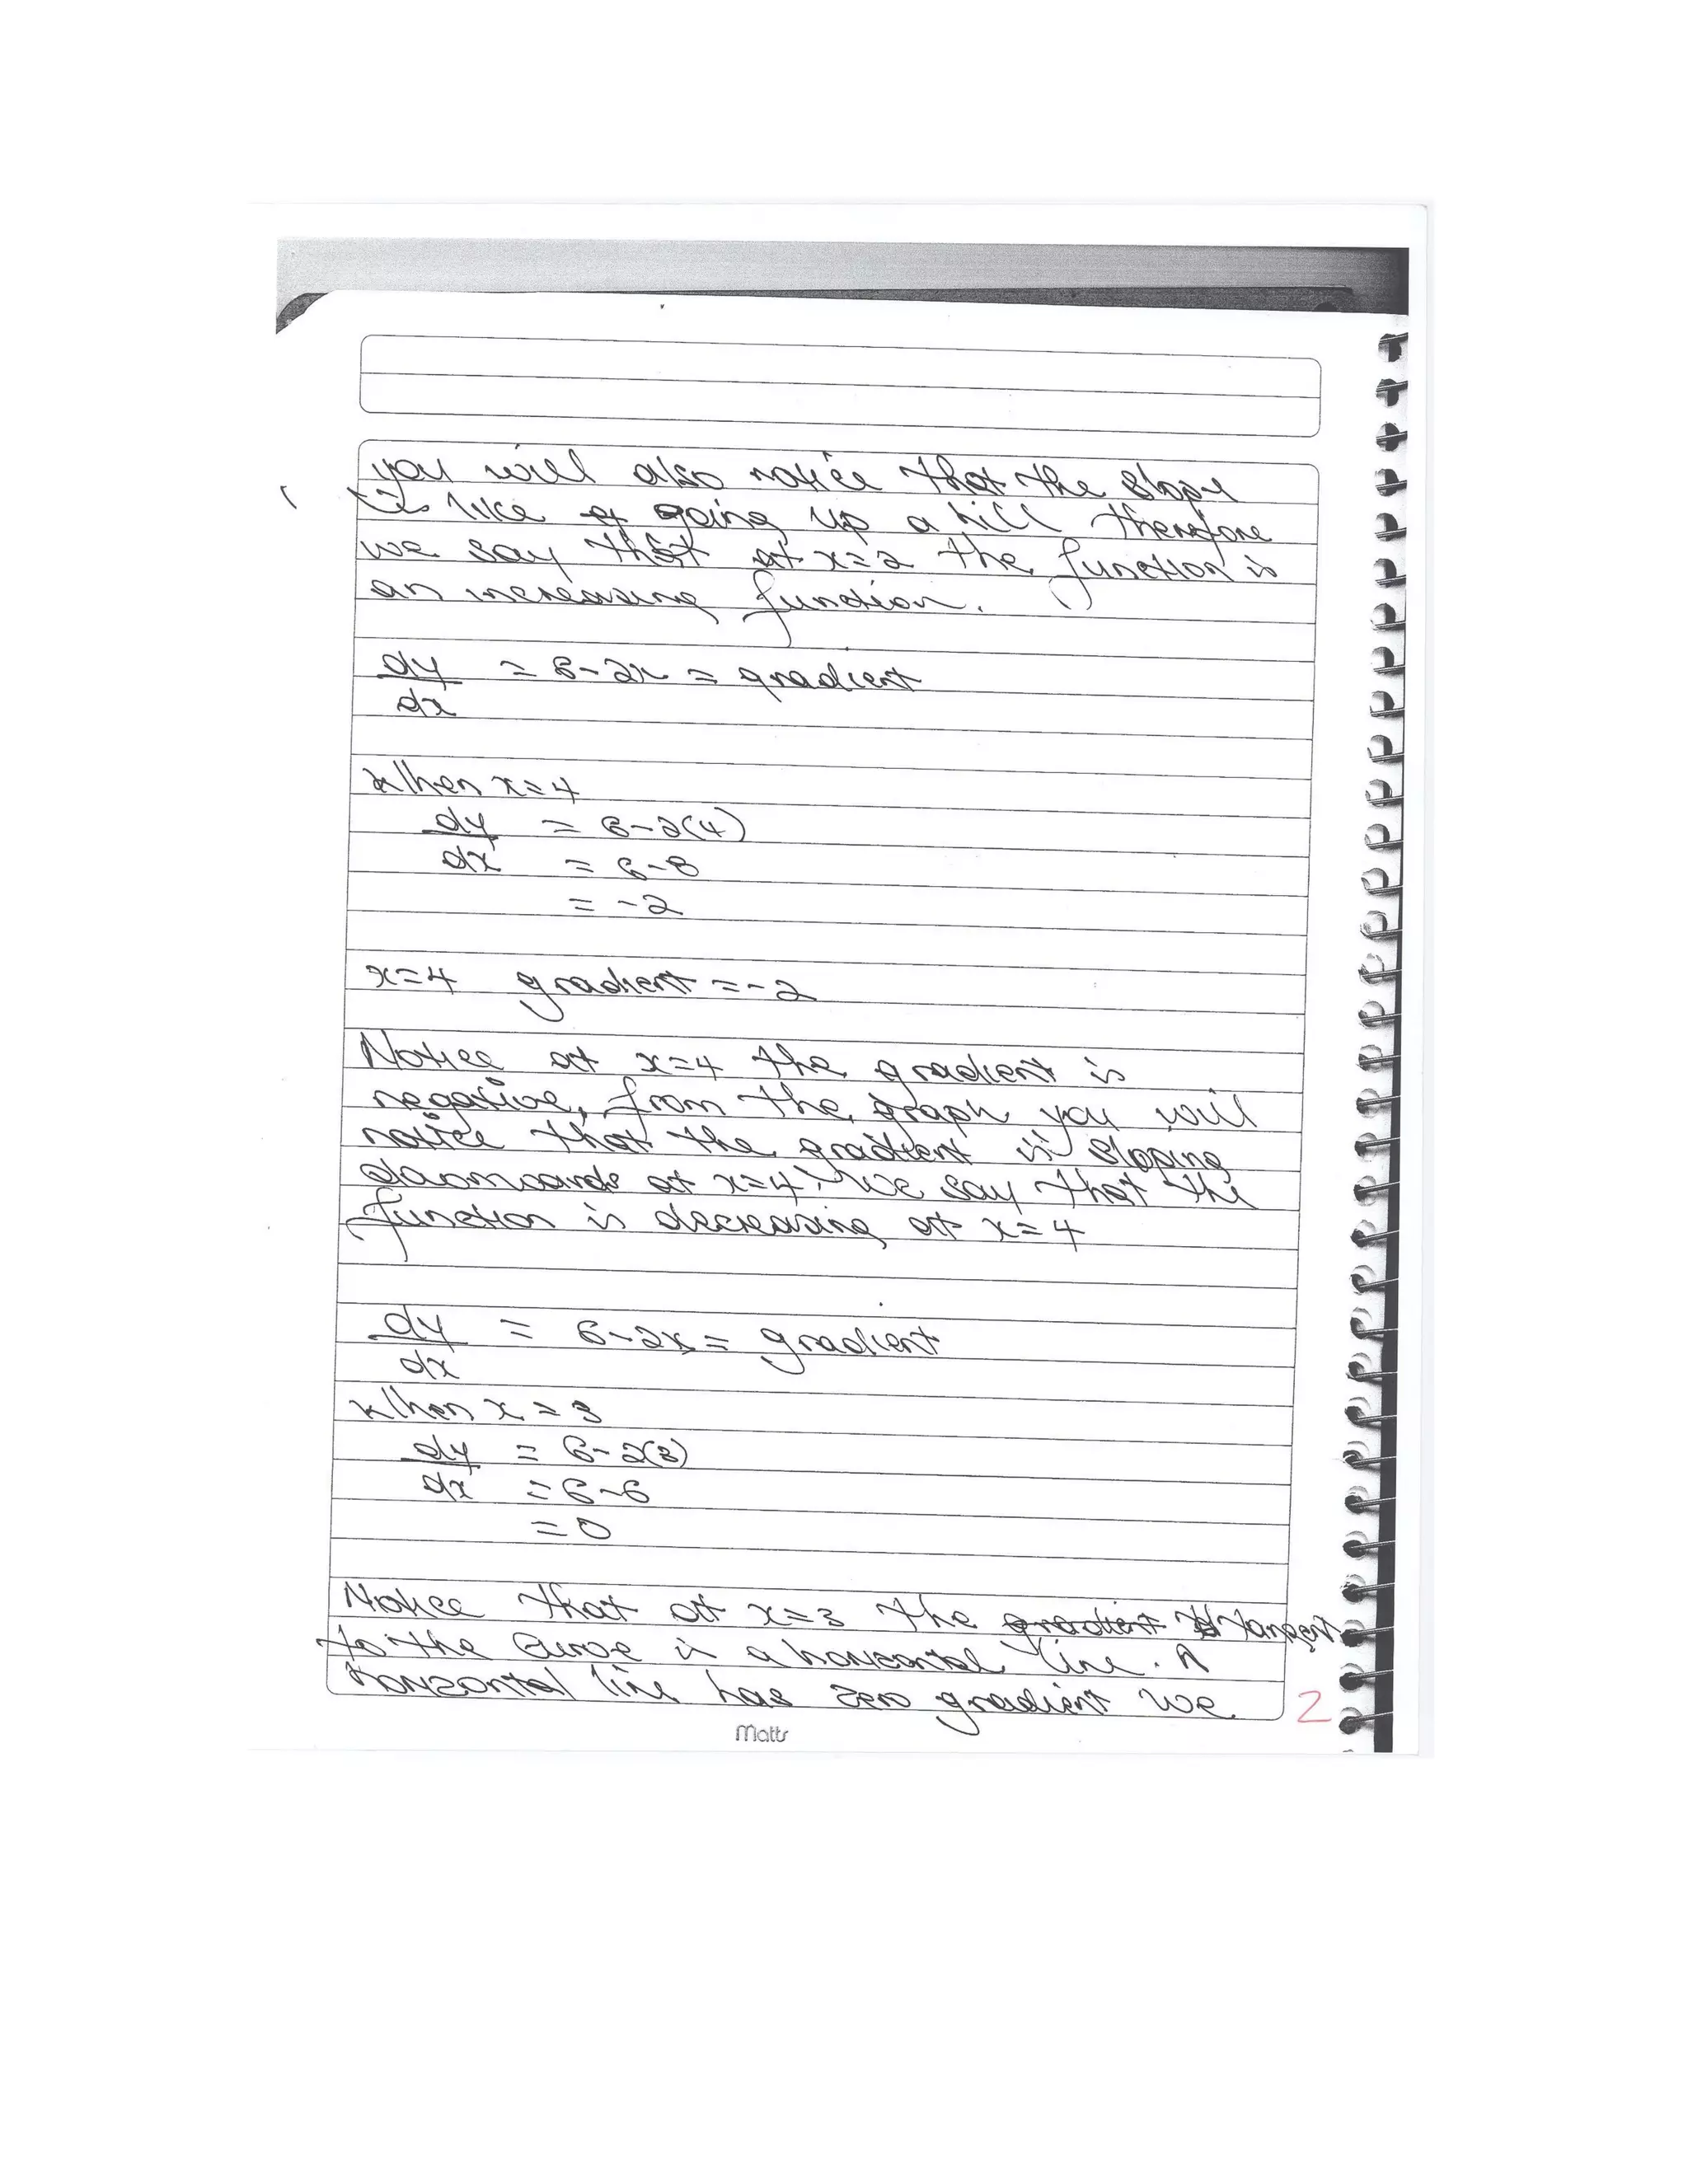 you will also notice that the slope
is like going up a hill therefore
we say that at x=2 the function is
an increasing function.
dy/dx = 6-2x = gradient
When x=4
dy/dx = 6-2(4)
= 6-8
= -2
x=4 gradient =-2
Notice at x=4 the gradient is
negative, from the graph you will
notice that the gradient is sloping
downwards at x=4. We say that the
function is decreasing at x=4
dy/dx = 6-2x = gradient
When x = 3
dy/dx = 6-2(3)
= 6-6
= 0
Notice that at x=3 the gradient tangent
to the curve is a horizontal line. A
horizontal line has zero gradient we
2
Matts